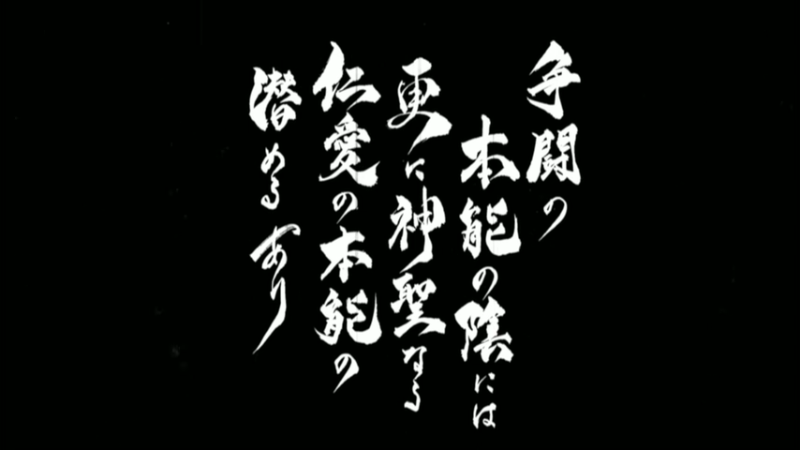 争闘の
本能の陰には
更に神聖なる
仁愛の本能の
潜めるあり